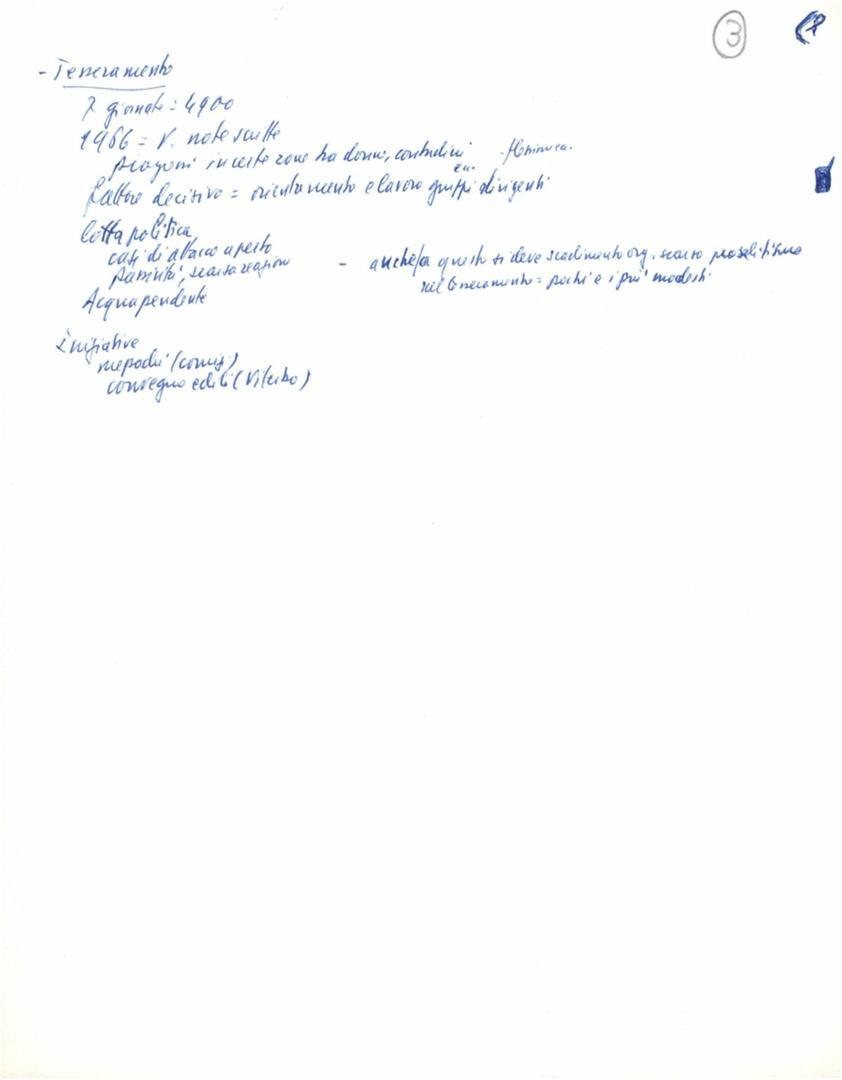 3
- Tesseramento
7 giornate = 4900
1966 = V. note scritte
progressi in certe zone tra donne, contadini
ecc.
fattore decisivo = orientamento e lavoro gruppi dirigenti
lotta politica
casi di attacco aperto
passività, scarsa reazione - anche a questo si deve scadimento org. scarso proselitismo
nel tesseramento = pochi e i più modesti
Acquapendente
Iniziative
(comizi)
convegno edili (Viterbo)